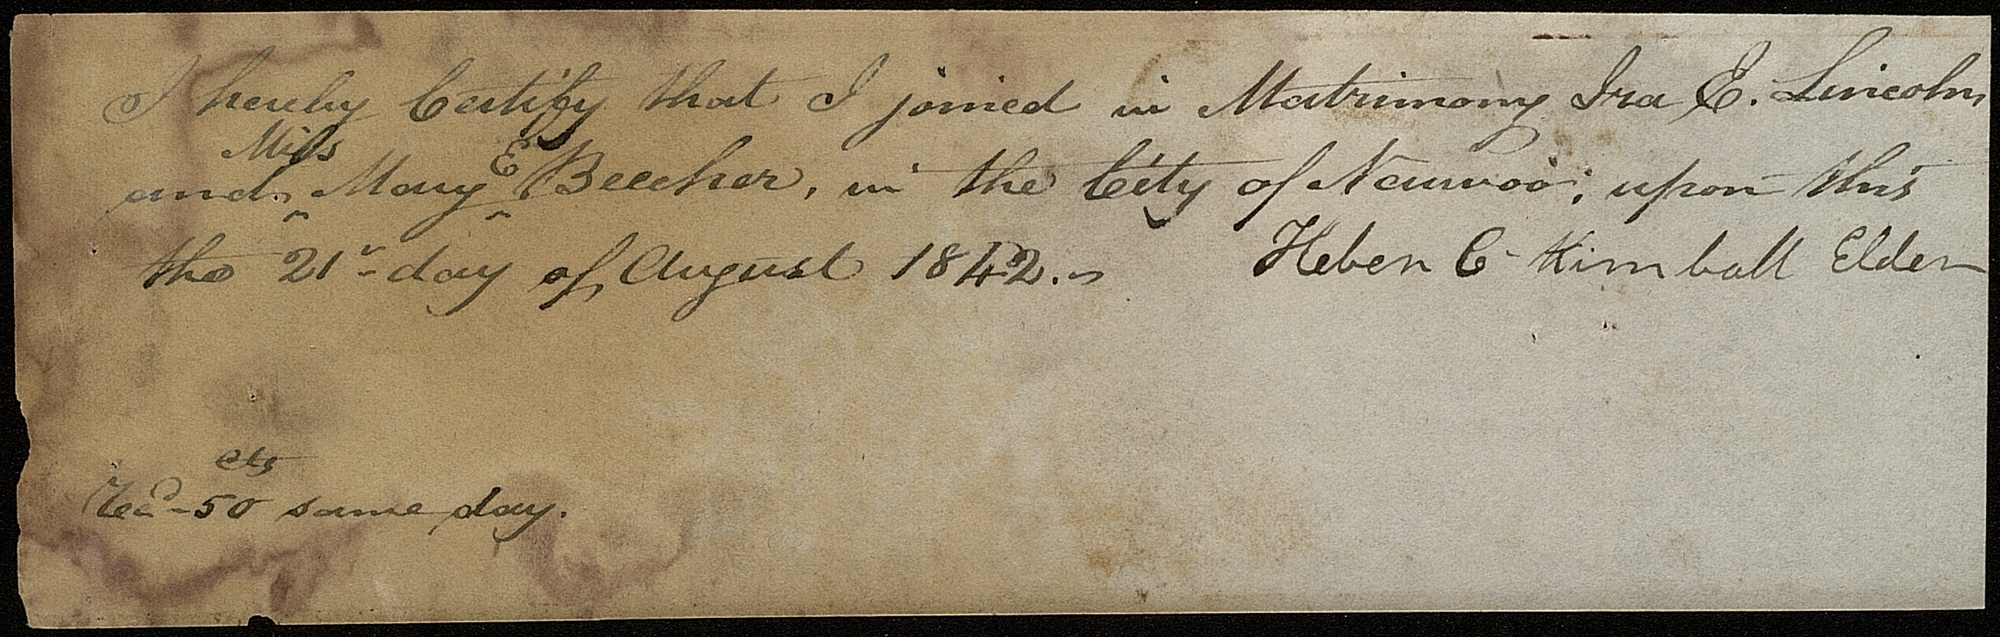 I hereby Certify that I joined in Matrimony Ira E. Lincoln,
Miss E
and Mary Beecher, in the City of Nauvoo; upon this
the 21st day of August 1842.
Heber C Kimball Elder
cts
Recd 50 same day.